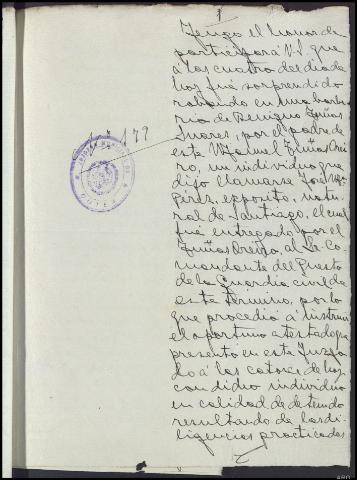 Tengo el honor de
participar a V.I. que
á las cuatro del día de
hoy fué sorprendido
robando en una barbe
ria de Benigno
Suarez, por el padre de
este Manuel
ro, un individuo que
dijo llamarse José
expósito, natu
ral de Santiago, el cual
fué entregado por el
al Co-
mandante del Puesto
de la Guardia civil de
este término, por lo
que procedió á instruir
el oportuno atestado que
presentó en este Juzga
do á las catorce de hoy
con dicho individuo
en calidad de detenido
resultando de las di-
ligencias practicadas